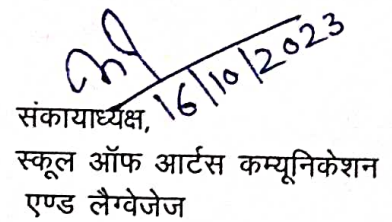 16/10/2023
संकायाध्यक्ष,
स्कूल ऑफ आर्टस कम्यूनिकेशन
एण्ड लैग्वेजेज